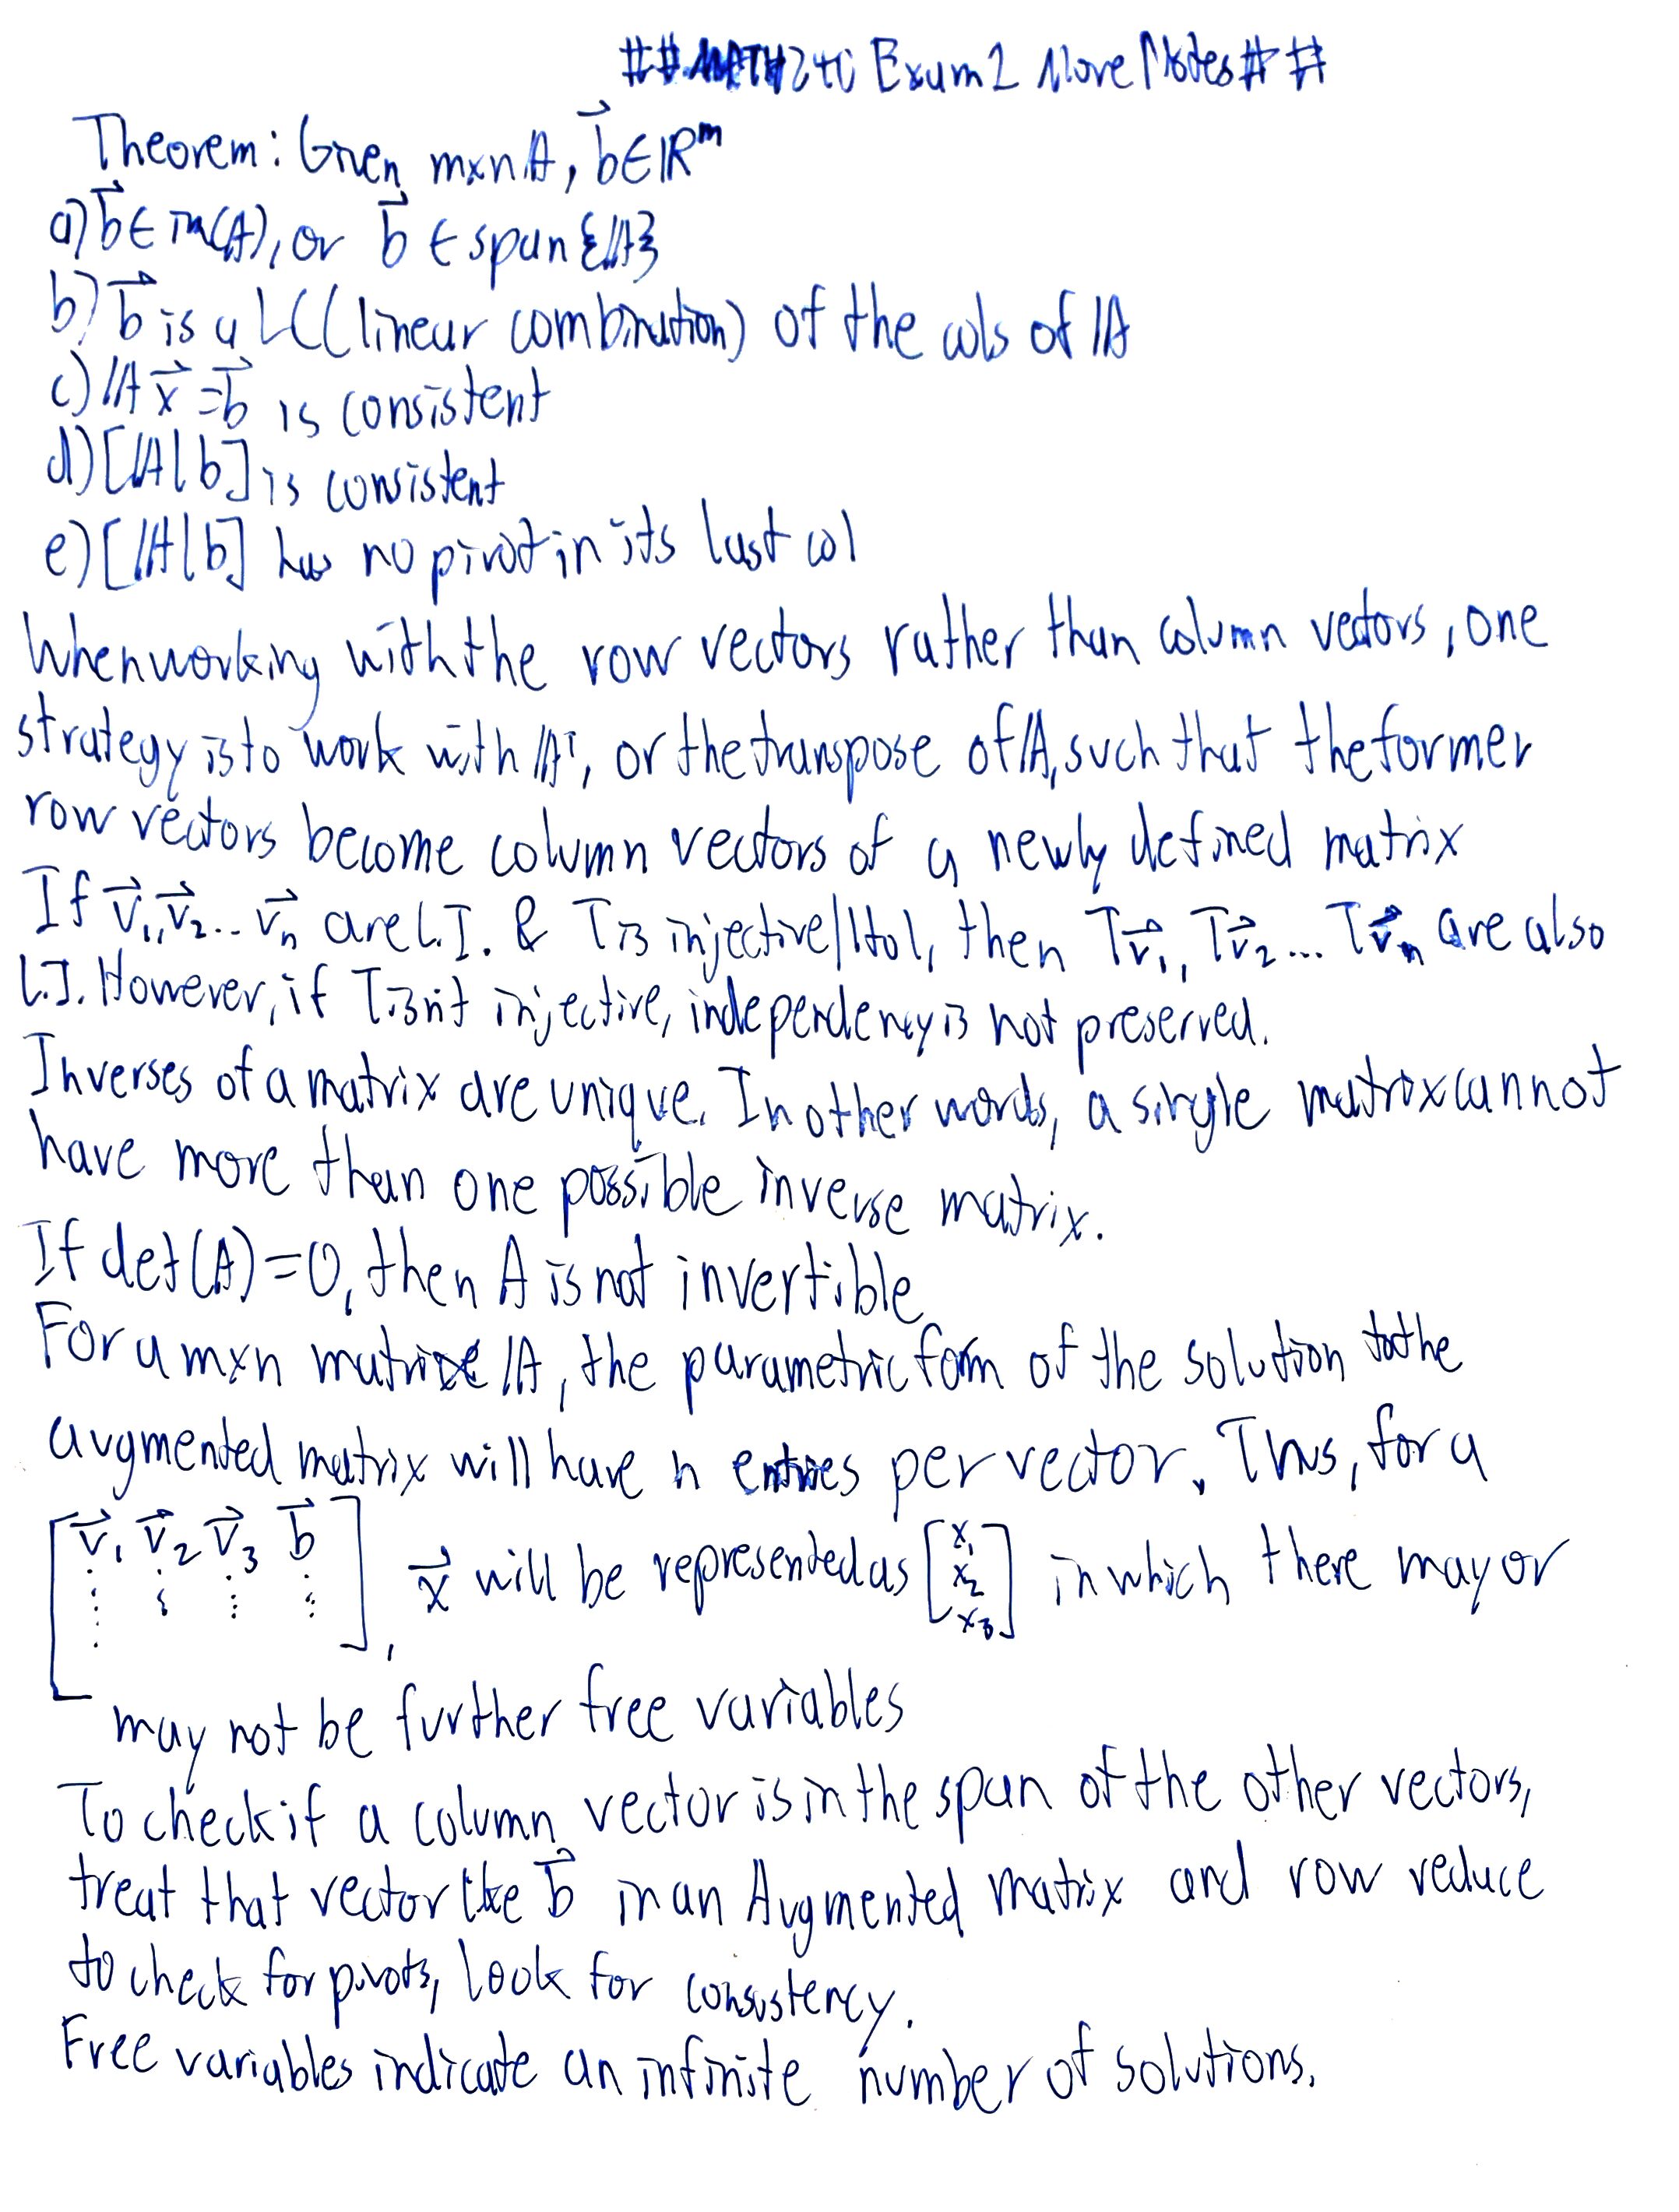 ## MATH240 Exam 2 More Notes ##
Theorem: Given m×n A, b⃗∈ℝᵐ
a) b⃗ ∈ im(A), or b⃗ ∈ span{A}
b) b⃗ is a LC (linear combination) of the cols of A
c) Ax⃗ = b⃗ is consistent
d) [A|b] is consistent
e) [A|b] has no pivot in its last col
When working with the row vectors rather than column vectors, one
strategy is to work with Aᵀ, or the transpose of A, such that the former
row vectors become column vectors of a newly defined matrix
If v⃗₁, v⃗₂... v⃗ₙ are L.I. & T is injective/1to1, then Tv⃗₁, Tv⃗₂... Tv⃗ₙ are also
L.I. However, if T isn't injective, independency is not preserved.
Inverses of a matrix are unique. In other words, a single matrix cannot
have more than one possible inverse matrix.
If det(A)=0, then A is not invertible
For a m×n matrix A, the parametric form of the solution to the
augmented matrix will have n entries per vector. Thus, for a
[v⃗₁ v⃗₂ v⃗₃ b⃗], x⃗ will be represented as [x₁ x₂ x₃] in which there may or
may not be further free variables
To check if a column vector is in the span of the other vectors,
treat that vector like b⃗ in an Augmented matrix and row reduce
to check for pivots, look for consistency.
Free variables indicate an infinite number of solutions.